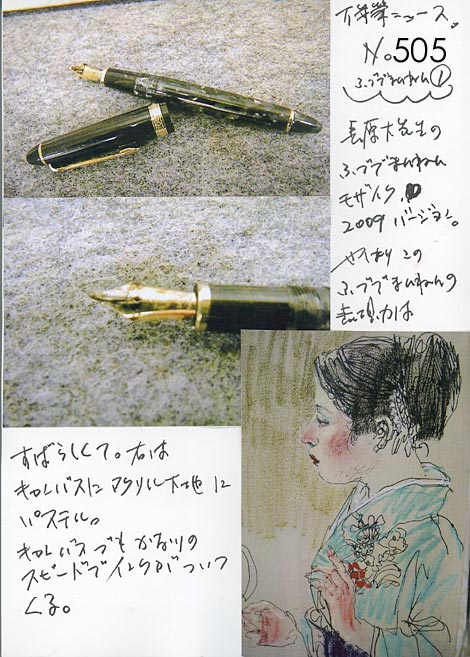 万年筆ニュース。
No.505
ふででまんねん①
長原大先生の
ふででまんねん
モザイク
2009 バージョン。
やはり この
ふででまんねんの
表現力は
すばらしくて。右は
キャンバスに アクリル下地に
パステル。
キャンバスでも かなりの
スピードでインクが ついて
くる。